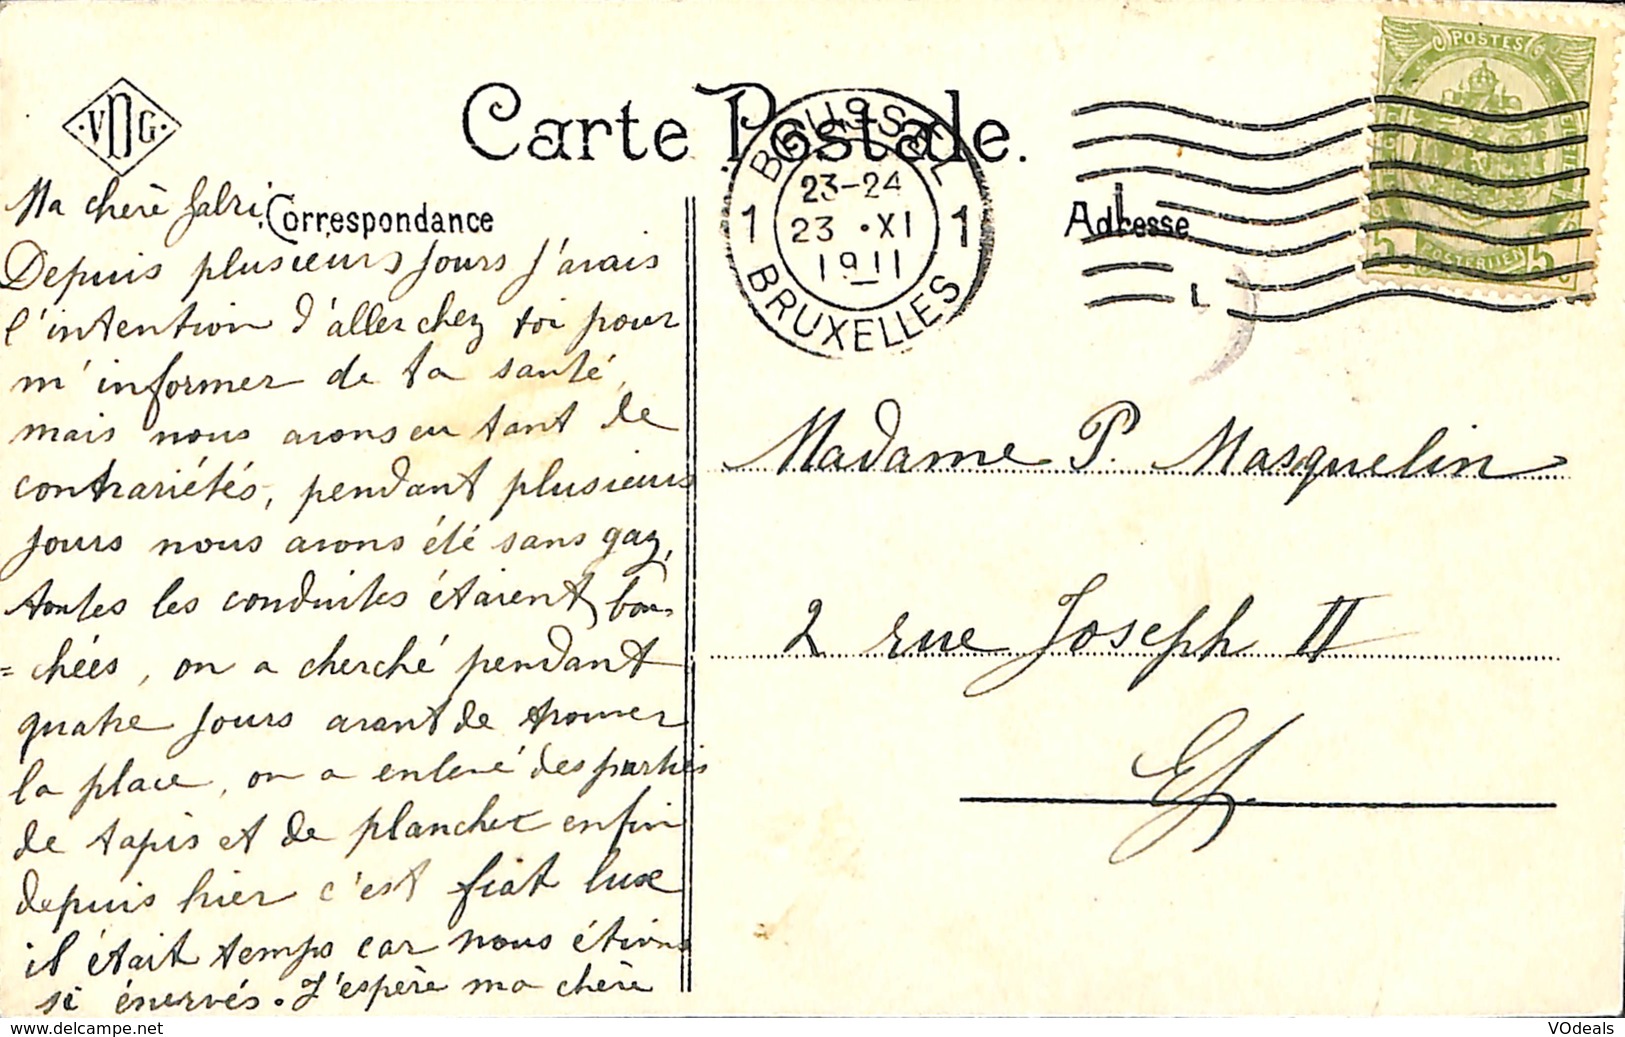 Carte Postale.
V D G
Correspondance
Adresse
BRUSSEL
23-24
1 23 · XI 1
1911
BRUXELLES
POSTES
POSTERIJEN
5 5
Ma chère
Depuis plusieurs jours j'avais
l'intention d'aller chez toi pour
m'informer de ta santé,
mais nous avons eu tant de
contrariétés, pendant plusieurs
jours nous avons été sans gaz,
toutes les conduites étaient bou-
=chées, on a cherché pendant
quatre jours avant de trouver
la place, on a enlevé des parties
de tapis et de plancher enfin
depuis hier c'est fiat lux
il était temps car nous étions
si énervés. J'espère ma chère
Madame P. Masquelin
2 rue Joseph II
VOdeals
www.delcampe.net